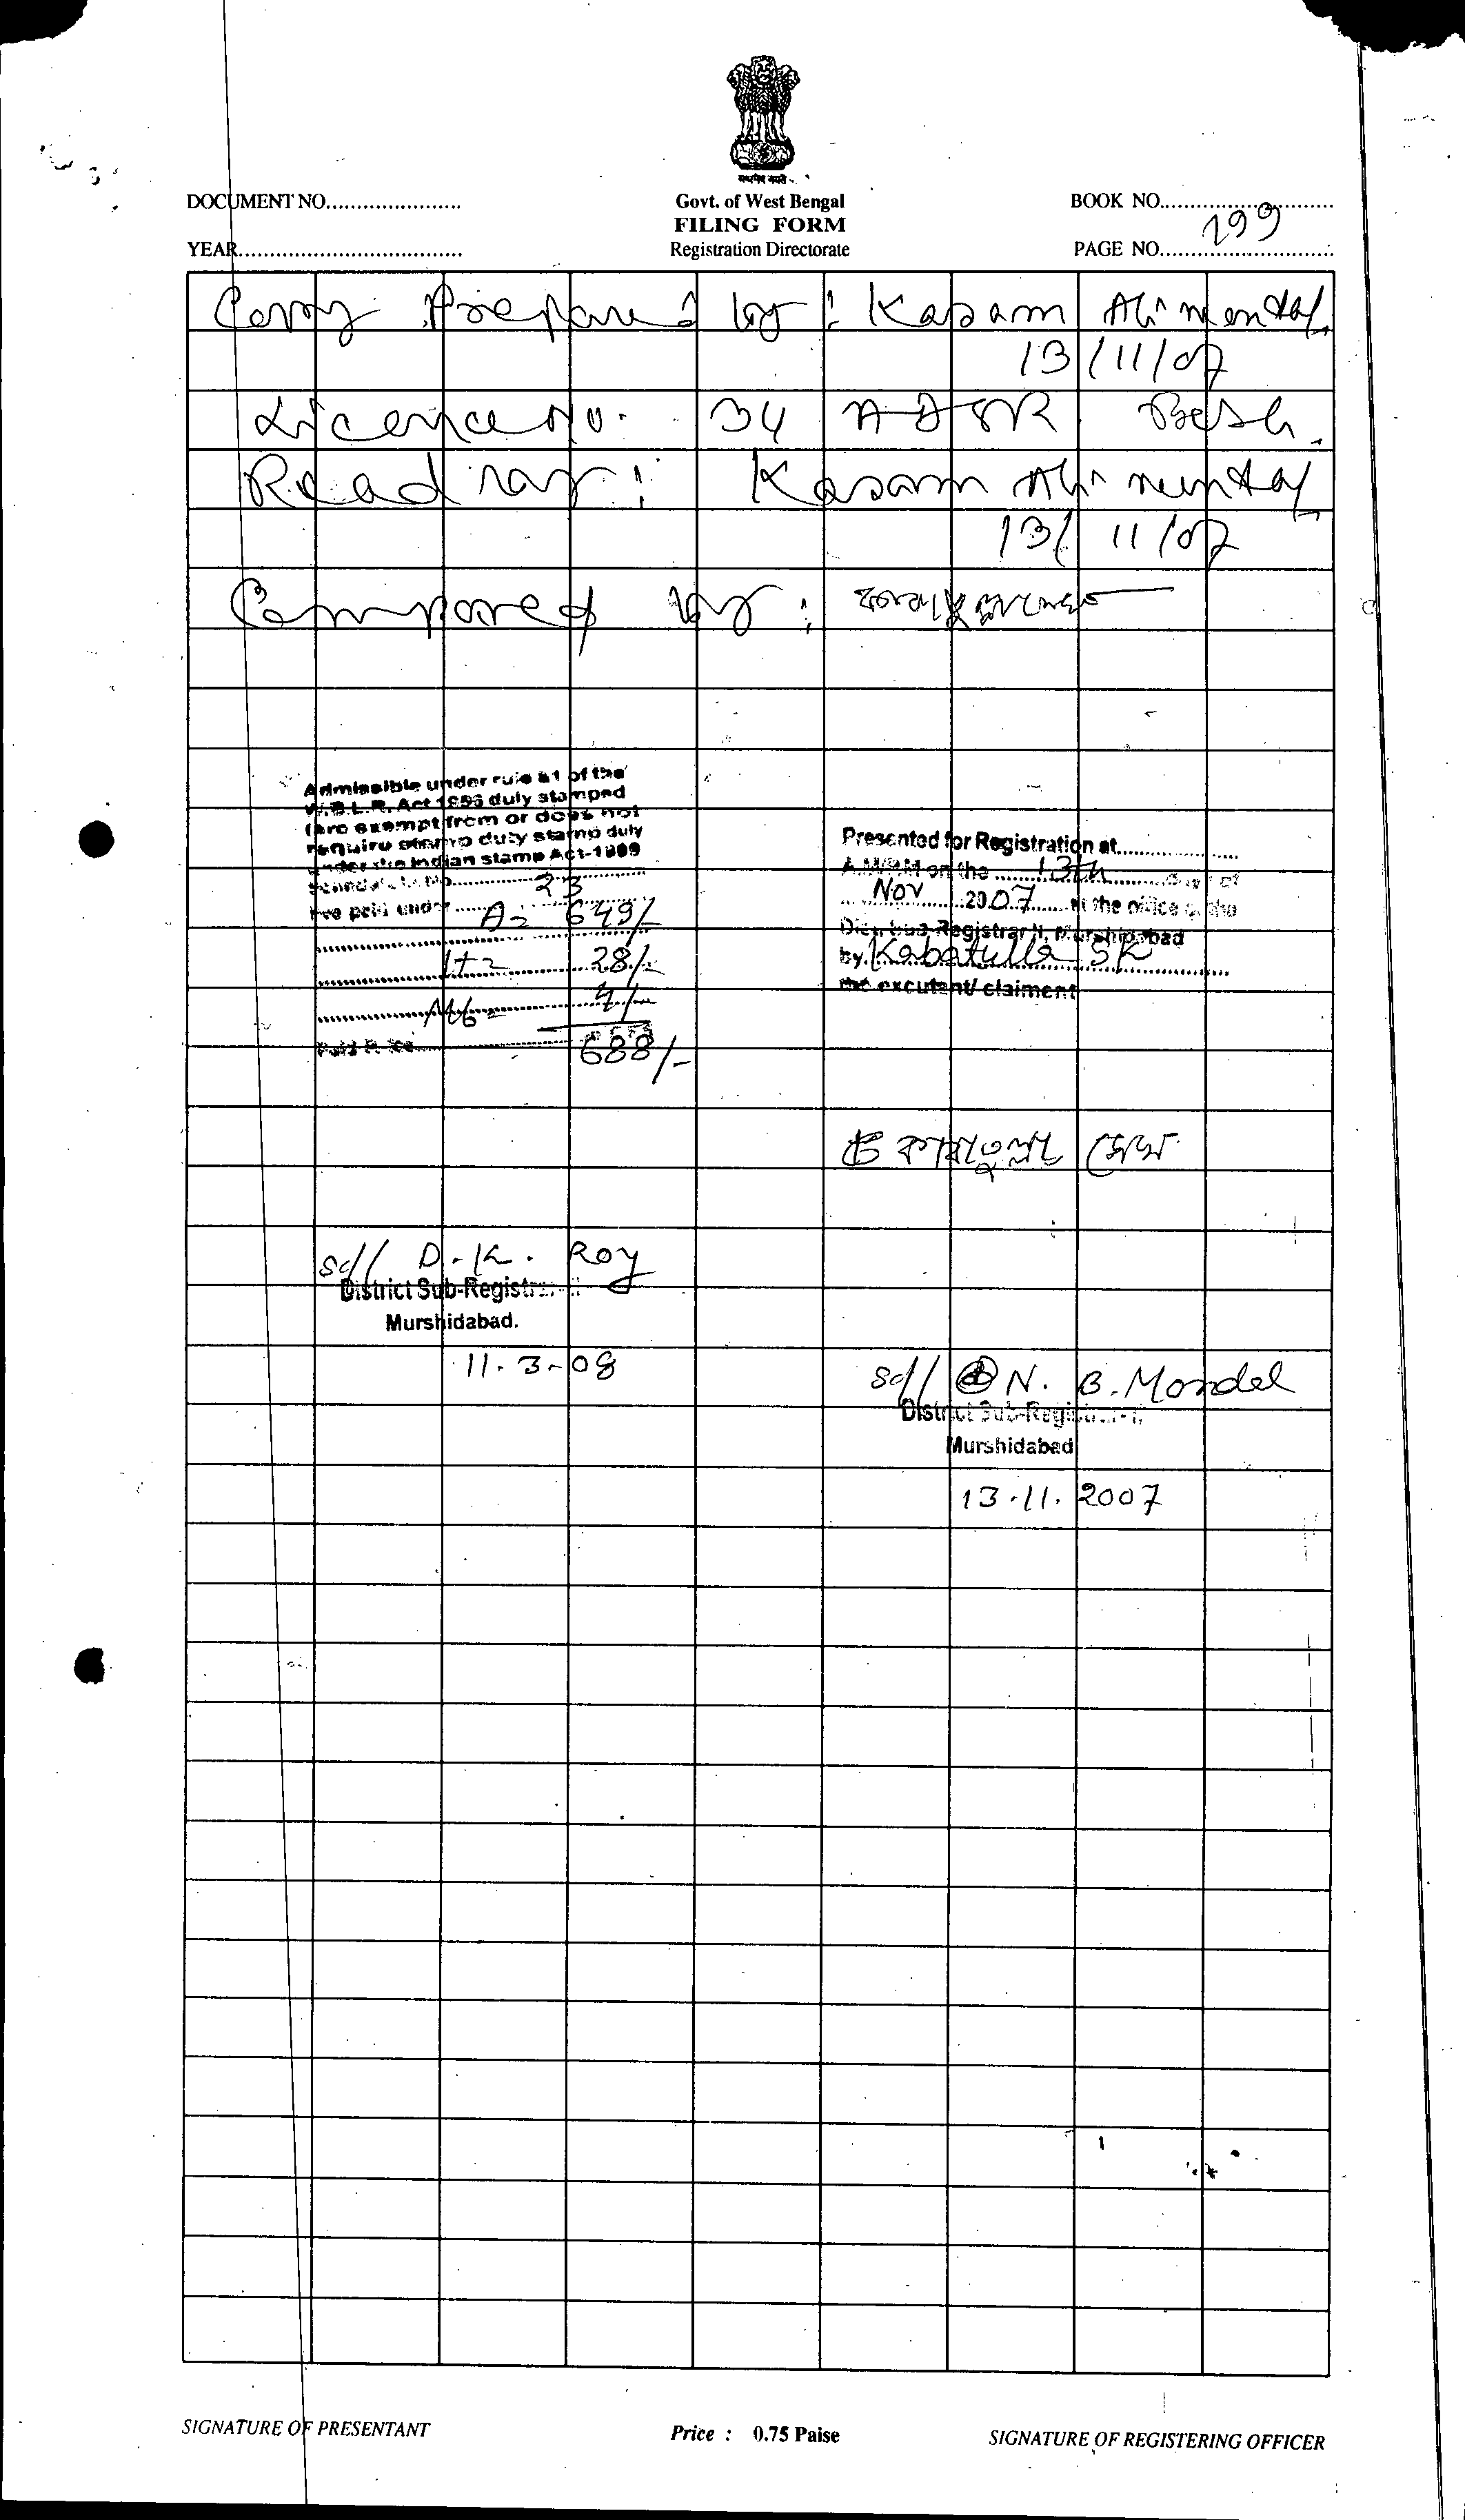 सत्यमेव जयते
DOCUMENT NO......................
Govt. of West Bengal
BOOK NO.............................
FILING FORM
199
YEAR.....................................
Registration Directorate
PAGE NO.............................
Copy Prepared by : Kasam Ali mondal
13/11/07
Licence No. 34 ADSR Besh.
Read by : Kasam Ali mondal
13/11/07
Compared by :
Admissible under rule 21 of the
W.B.L.R. Act 1956 duly stamped
(are exempt from or does not
require stamp duty stamp duly
under the Indian stamp Act-1899
Schedule No. 23
Fee paid under A= 649/-
H= 28/-
Mb=
688/-
Presented for Registration at..................
A.M/P.M on the 13th day of
Nov 2007 at the office of the
Dist. Sub-Registrar II, Murshidabad
by Kabatulla SK
the excutant/ claiment
কাবাতুল্লা সেখ
Sd// D. K. Roy
District Sub-Registrar-II
Murshidabad.
11-3-08
Sd// N. B. Mondal
District Sub-Registrar-II
Murshidabad
13.11.2007
SIGNATURE OF PRESENTANT
Price : 0.75 Paise
SIGNATURE OF REGISTERING OFFICER